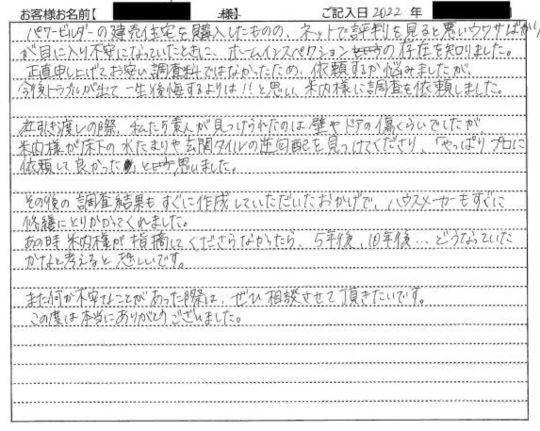 お客様お名前【 様】 ご記入日 2022 年
パワービルダーの建売住宅を購入したものの、ネットで評判を見ると悪いウワサばかり
が目に入り不安になっていたときに、ホームインスペクションの存在を知りました。
正直申し上げてお安い調査料ではなかったため、依頼するか悩みましたが、
今後トラブルが出て一生後悔するよりは!!と思い、米内様に調査を依頼しました。
お引き渡しの際、私たち素人が見つけられたのは壁やドアの傷くらいでしたが、
米内様が床下の水たまりや玄関タイルの逆勾配を見つけてくださり、「やっぱりプロに
依頼して良かった」と思いました。
その後の調査結果もすぐに作成していただいたおかげで、ハウスメーカーもすぐに
修繕にとりかかってくれました。
あの時米内様が指摘してくださらなかったら、5年後、10年後…どうなっていた
かなと考えると恐しいです。
また何か不安なことがあった際は、ぜひ相談させて頂きたいです。
この度は本当にありがとうございました。